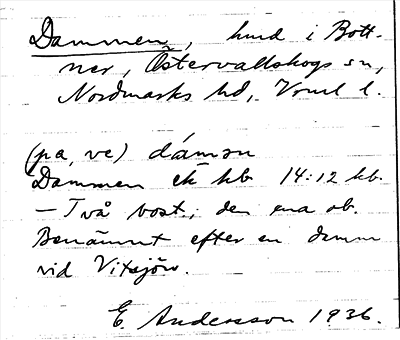 Dammen, hmd i Bott-
ner, Östervallskogs sn,
Nordmarks hd, Vrml l.
(pa, ve) dámən
Dammen ek kb 14:12 hb.
— Två bost.; den ena ob.
Benämnt efter en damm
vid Vitsjön.
E. Andersson 1936.